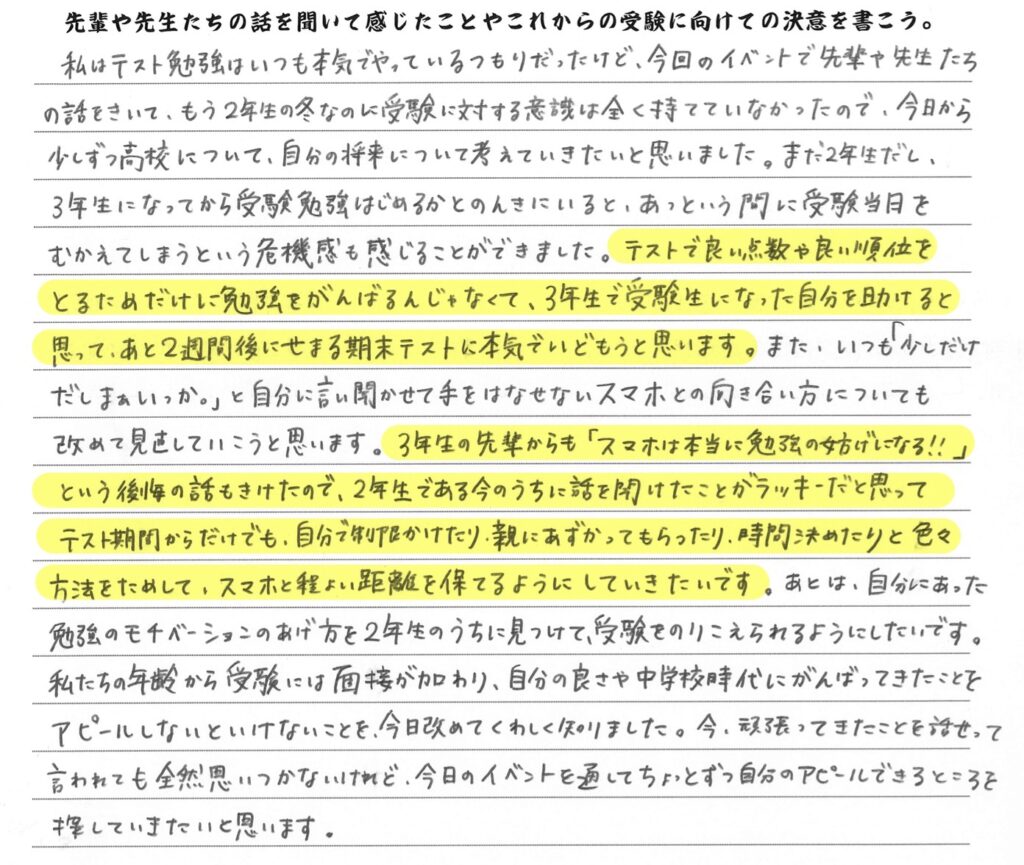 先輩や先生たちの話を聞いて感じたことやこれからの受験に向けての決意を書こう。
私はテスト勉強はいつも本気でやっているつもりだったけど、今回のイベントで先輩や先生たち
の話をきいて、もう2年生の冬なのに受験に対する意識は全く持てていなかったので、今日から
少しずつ高校について、自分の将来について考えていきたいと思いました。まだ2年生だし、
3年生になってから受験勉強はじめるかとのんきにいると、あっという間に受験当日を
むかえてしまうという危機感も感じることができました。テストで良い点数や良い順位を
とるためだけに勉強をがんばるんじゃなくて、3年生で受験生になった自分を助けると
思って、あと2週間後にせまる期末テストに本気でいどもうと思います。また、いつも「少しだけ
だしまぁいっか。」と自分に言い聞かせて手をはなせないスマホとの向き合い方についても
改めて見直していこうと思います。3年生の先輩からも「スマホは本当に勉強の妨げになる!!」
という後悔の話もきけたので、2年生である今のうちに話を聞けたことがラッキーだと思って
テスト期間からだけでも、自分で制限かけたり、親にあずかってもらったり、時間決めたりと色々
方法をためして、スマホと程よい距離を保てるようにしていきたいです。あとは、自分にあった
勉強のモチベーションのあげ方を2年生のうちに見つけて、受験をのりこえられるようにしたいです。
私たちの年齢から受験には面接が加わり、自分の良さや中学校時代にがんばってきたことを
アピールしないといけないことを、今日改めてくわしく知りました。今、頑張ってきたことを話せって
言われても全然思いつかないけれど、今日のイベントを通してちょっとずつ自分のアピールできるところを
探していきたいと思います。